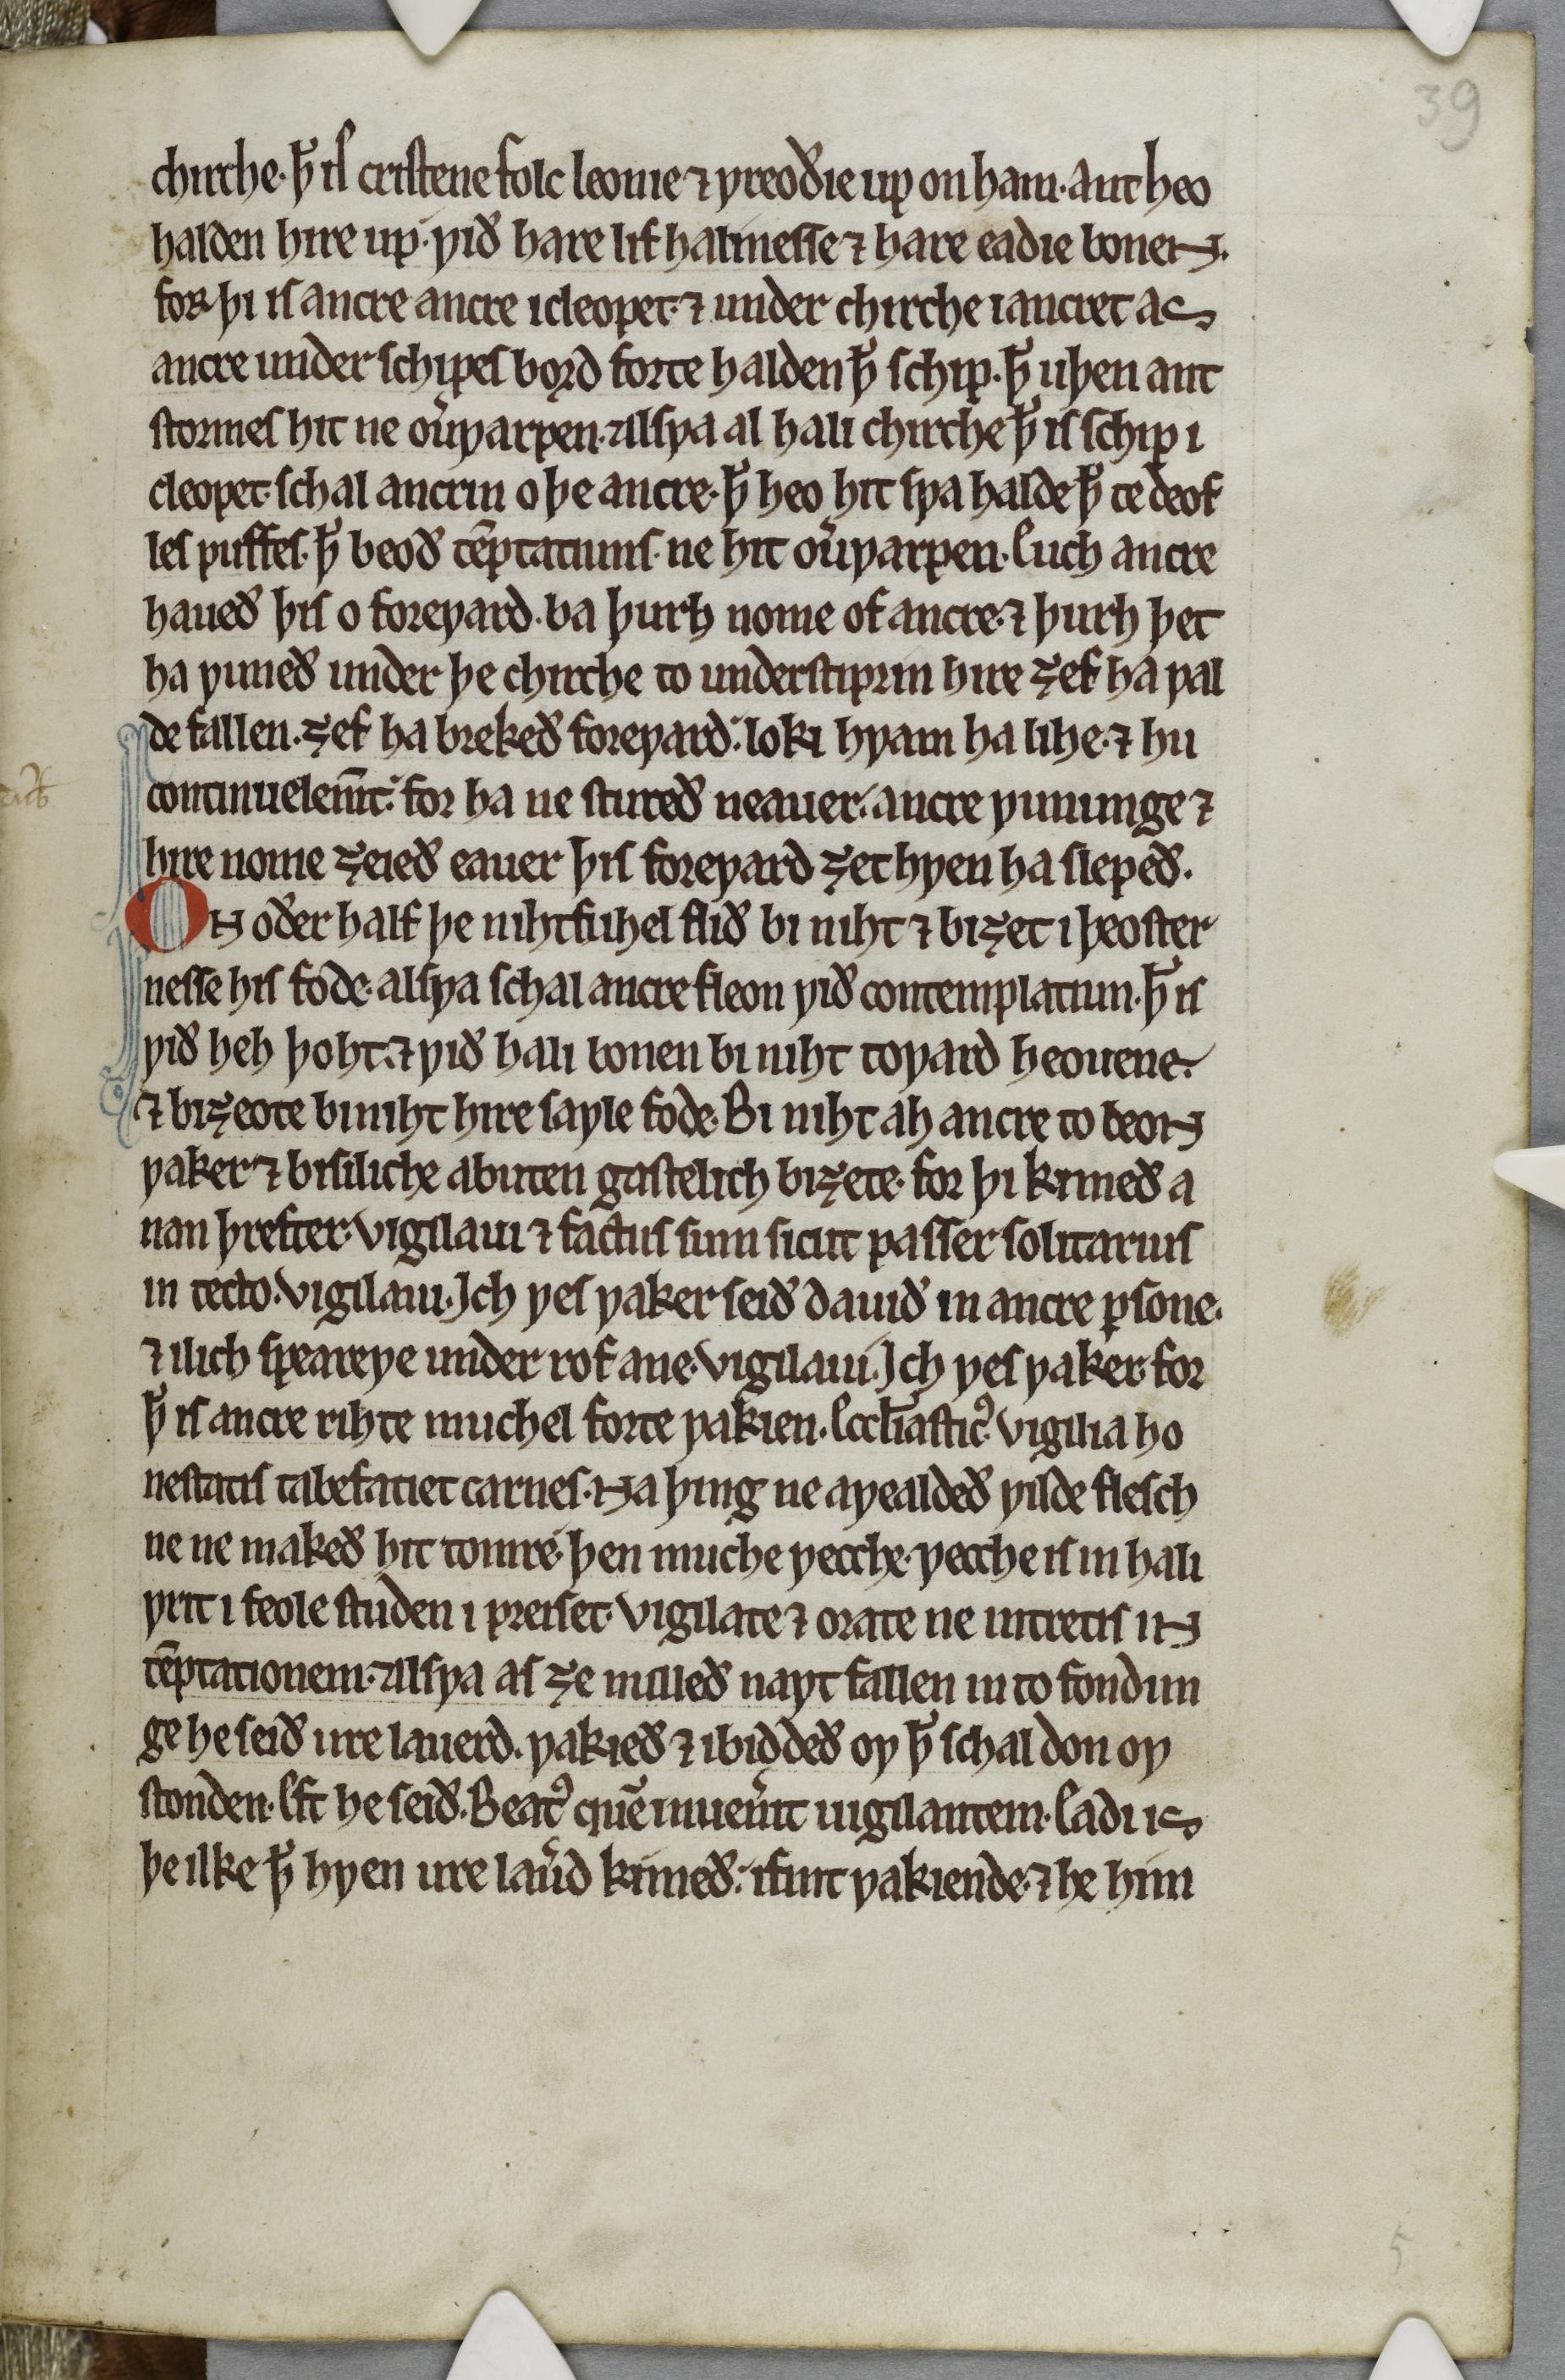 39
chirche. ꝥ is cristene folc leonie ⁊ ƿreoðie up on ham. ant heo
halden hire up. ƿið hare lif halinesse ⁊ hare eadie bonen.
for þi is ancre ancre icleopet. ⁊ under chirche iancret as
ancre under schipes bord forte halden ꝥ schip. ꝥ uþen ant
stormes hit ne ou̓ƿarpen. alsƿa al hali chirche ꝥ is schip i
cleopet. schal ancrin o þe ancre. ꝥ heo hit sƿa halde ꝥ te deof
les puffes. ꝥ beoð tēptatiuns. ne hit ou̓ƿarpen. Euch ancre
haueð þis o foreƿard. ba þurh nome of ancre. ⁊ þurh þet
ha ƿuneð under þe chirche to understiprin hire ȝef ha ƿal
de fallen. ȝef ha brekeð foreƿard. loki hƿam ha lihe. ⁊ hu
continuelemt̄. for ha ne stureð neauer. ancre ƿununge ⁊
hire nome ȝeieð eauer þis foreƿard ȝet hƿen ha slepeð.
ON oðer half þe nihtfuhel flið bi niht ⁊ biȝet i þeoster
nesse his fode. alsƿa schal ancre fleon ƿið contemplatiun. ꝥ is
ƿið heh þoht. ⁊ ƿið hali bonen bi niht toƿard heouene.
⁊ biȝeote bi niht hire saƿle fode. Bi niht ah ancre to beon
ƿaker ⁊ bisiliche abuten gastelich biȝete. for þi kimeð a
nan þrefter. vigilaui ⁊ factus sum sicut passer solitarius
in tecto. vigilaui. Ich ƿes ƿaker seið dauið in ancre ꝑsone.
⁊ ilich speareƿe under rof ane. vigilaui. Ich ƿes ƿaker. for
ꝥ is ancre rihte muchel forte ƿakien. Eccl̄iasticꝰ. vigilia ho
nestatis tabefatiet carnes. Na þing ne aƿealdeð ƿilde flesch
ne ne makeð hit tomre. þen muche ƿecche. ƿecche is in hali
ƿrit i feole studen i preiset. vigilate ⁊ orate ne intretis in
tēptationem. alsƿa as ȝe nulleð naƿt fallen in to fondun
ge he seið ure lauerd. ƿakieð ⁊ ibiddeð oƿ ꝥ schal don oƿ
stonden. Eft he seið. Beatꝰ quē inuen̓it uigilantem. Eadi is
þe ilke ꝥ hƿen ure lau̓d kimeð. ifint ƿakiende. ⁊ he him
5